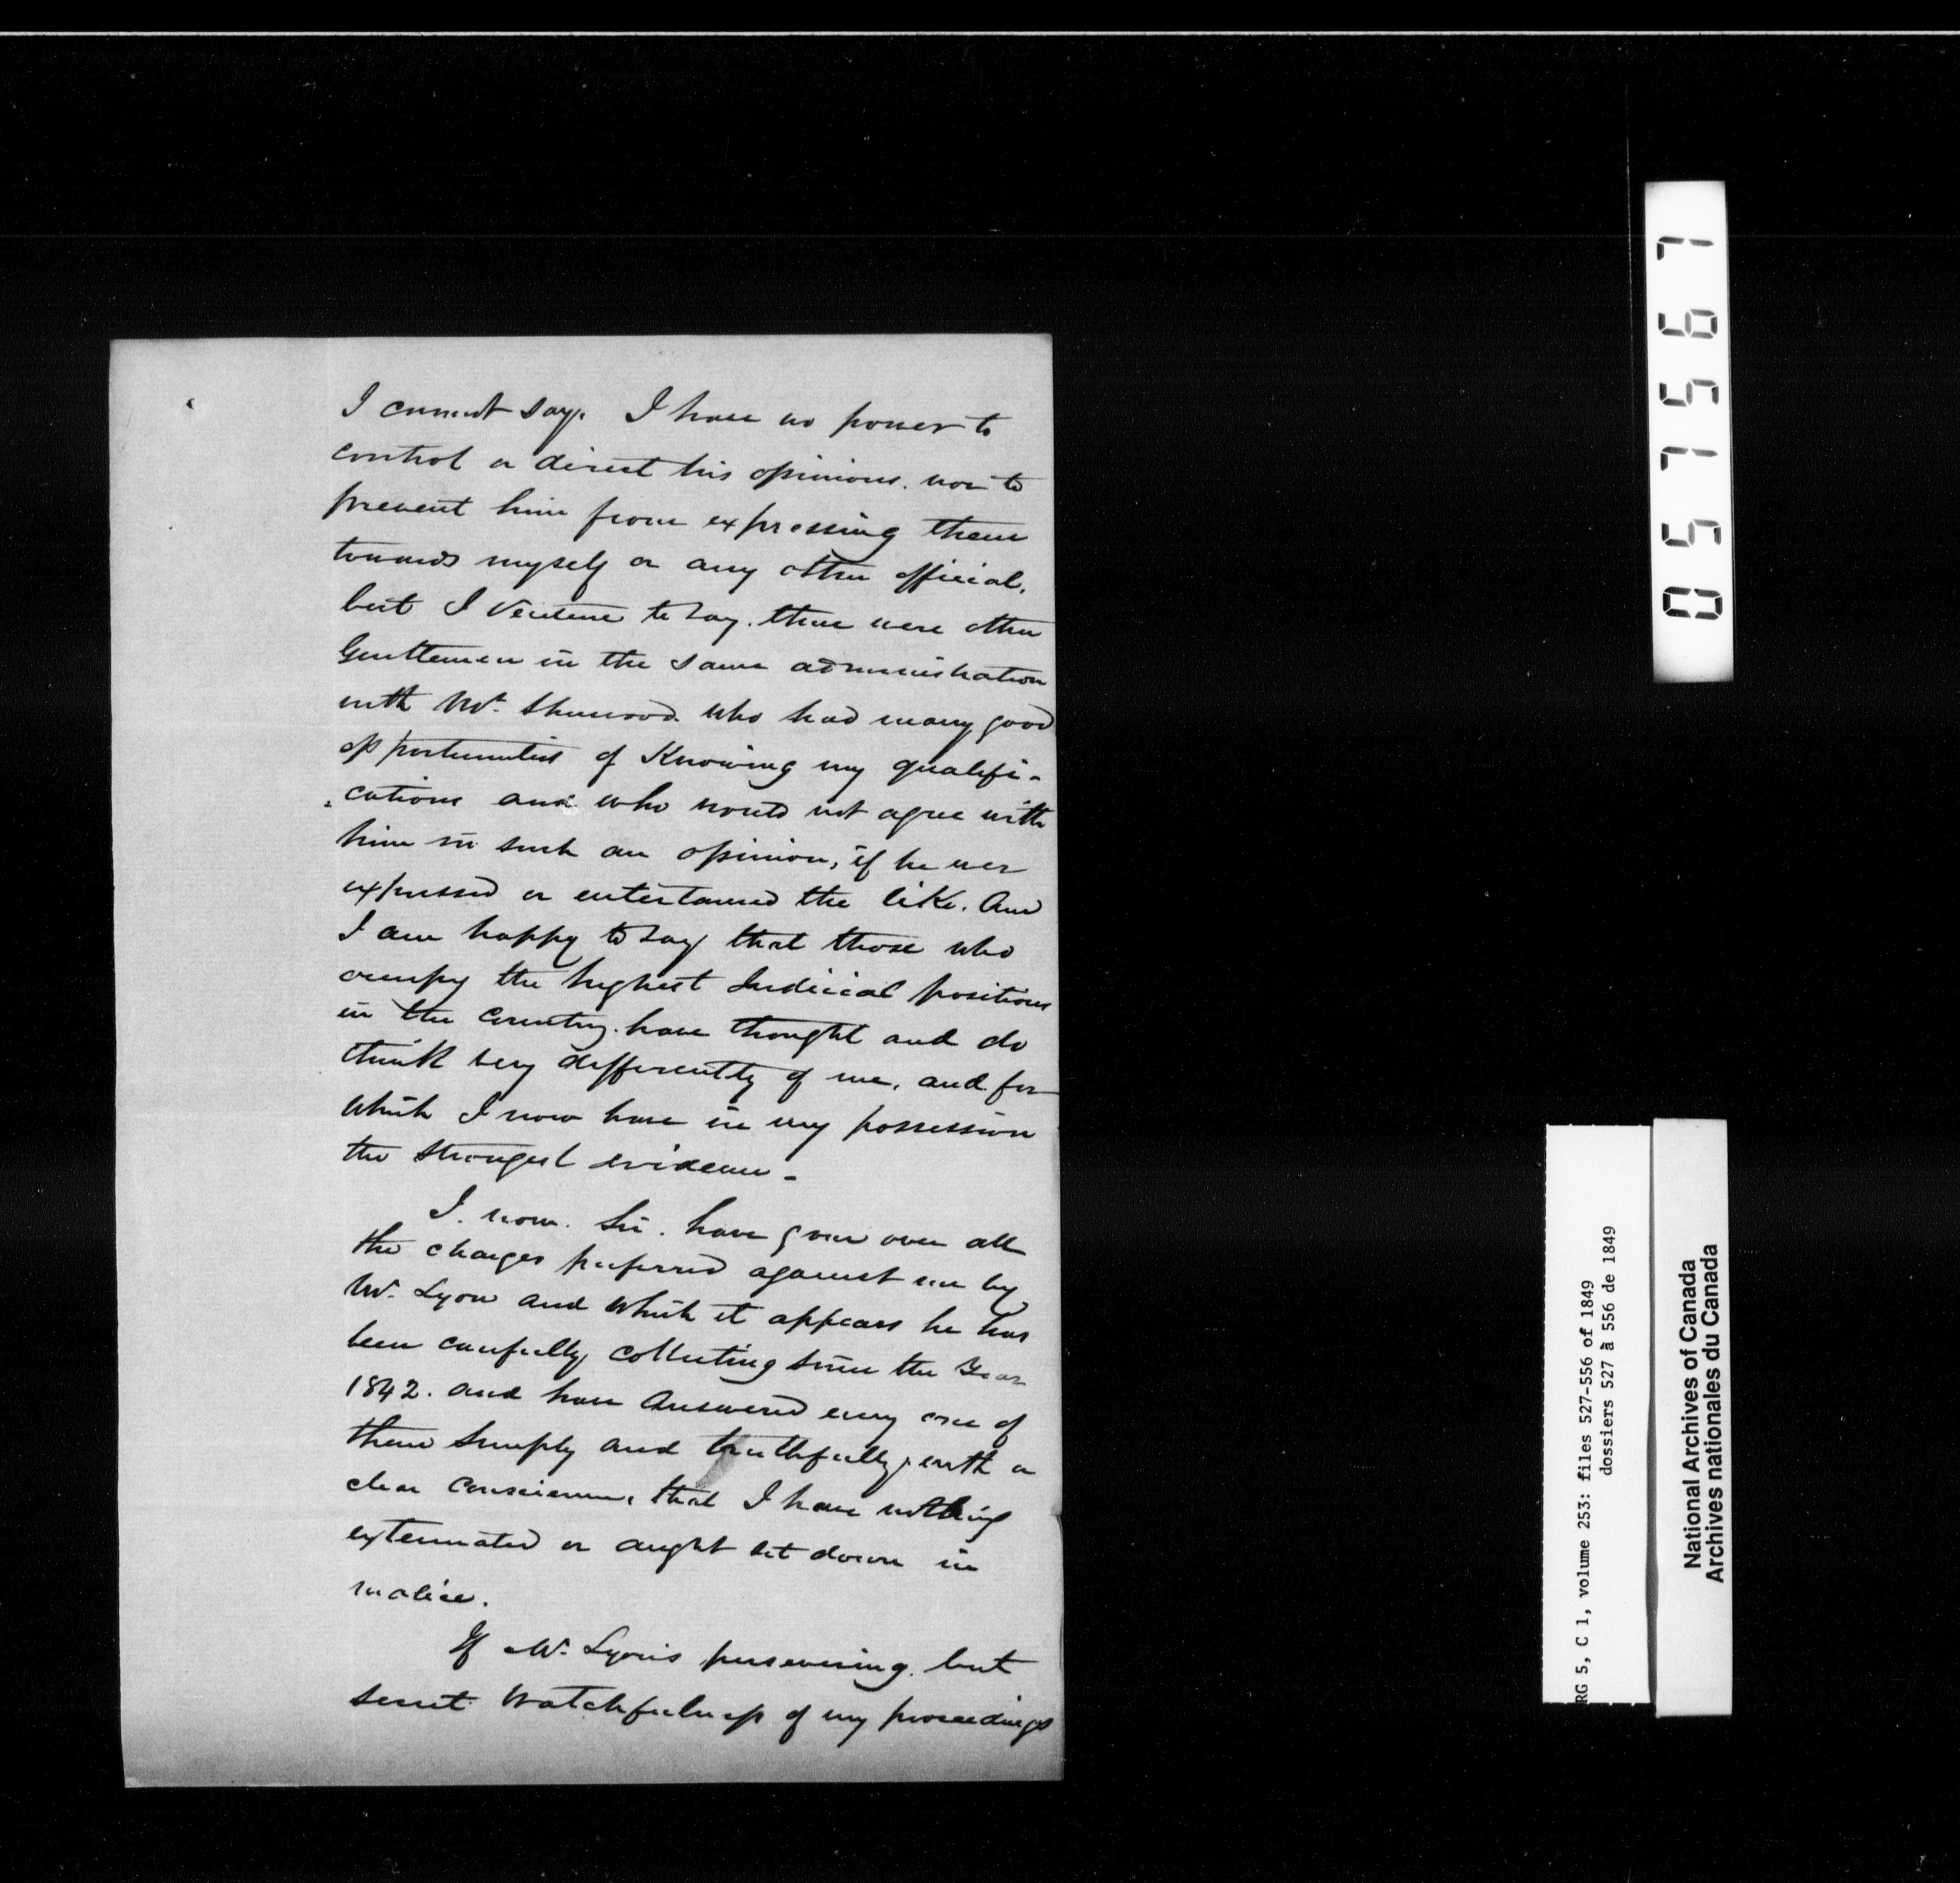 I cannot say. I have no power to
control or direct his opinions. nor to
prevent him from expressing them
towards myself or any other official,
but I venture to say. there were other
Gentlemen in the same administration
with Mr. Sherwood. who had many good
opportunities of Knowing my qualifi-
cations and who would not agree with
him in such an opinion, if he ever
expressed or entertained the like. And
I am happy to say that those who
occupy the highest Judicial positions
in the Country. have thought and do
think very differently of me, and for
which I now have in my possession
the strongest evidence -
I. now. Sir. have gone over all
the charges preferred against me by
Mr. Lyon and which it appears he has
been carefully collecting since the Year
1842. and have Answered every one of
them simply and truthfully, with a
clear Conscience, that I have nothing
extenuated or aught set down in
malice.
If Mr. Lyon's persevering. but
secret watchfulness of my proceedings
057567
RG 5, C 1, volume 253: files 527-556 of 1849
dossiers 527 à 556 de 1849
National Archives of Canada
Archives nationales du Canada